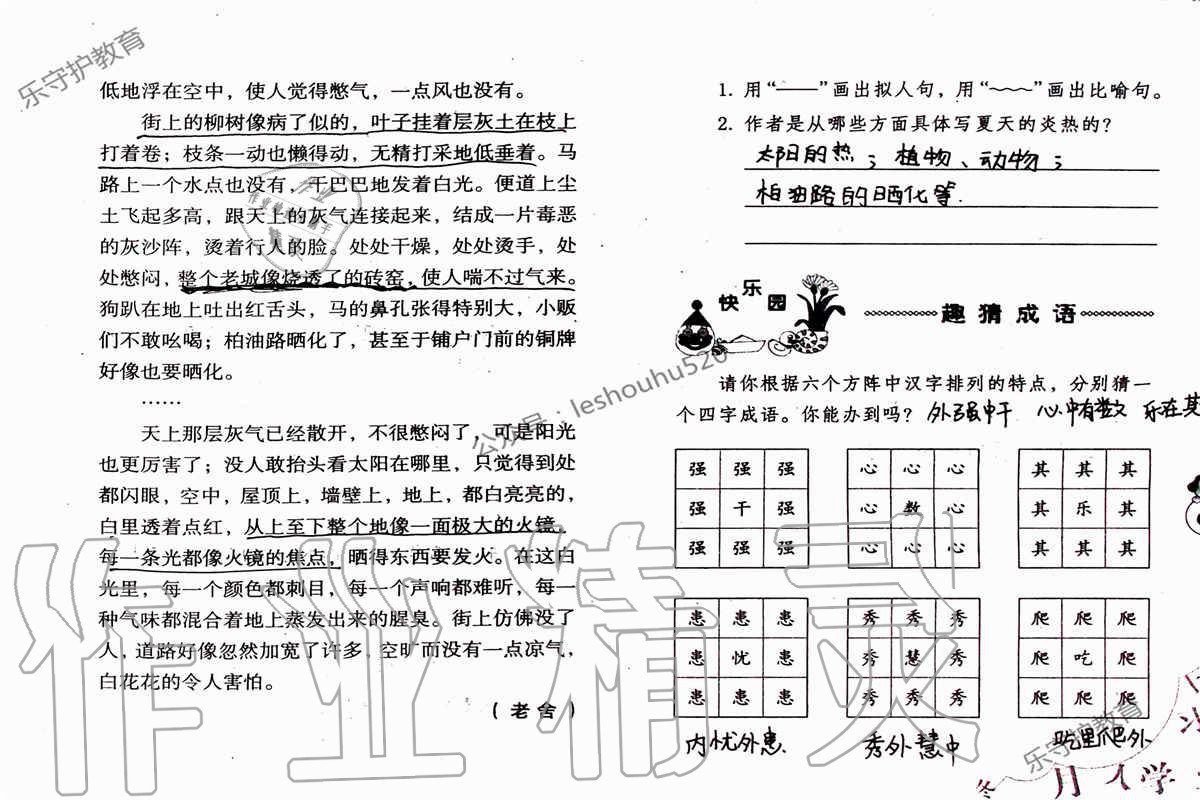 低地浮在空中，使人觉得憋气，一点风也没有。
街上的柳树像病了似的，叶子挂着层灰土在枝上
打着卷；枝条一动也懒得动，无精打采地低垂着。马
路上一个水点也没有，干巴巴地发着白光。便道上尘
土飞起多高，跟天上的灰气连接起来，结成一片毒恶
的灰沙阵，烫着行人的脸。处处干燥，处处烫手，处
处憋闷，整个老城像烧透了的砖窑，使人喘不过气来。
狗趴在地上吐出红舌头，马的鼻孔张得特别大，小贩
们不敢吆喝；柏油路晒化了，甚至于铺户门前的铜牌
好像也要晒化。
……
天上那层灰气已经散开，不很憋闷了，可是阳光
也更厉害了；没人敢抬头看太阳在哪里，只觉得到处
都闪眼，空中，屋顶上，墙壁上，地上，都白亮亮的，
白里透着点红，从上至下整个地像一面极大的火镜，
每一条光都像火镜的焦点，晒得东西要发火。在这白
光里，每一个颜色都刺目，每一个声响都难听，每一
种气味都混合着地上蒸发出来的腥臭。街上仿佛没了
人，道路好像忽然加宽了许多，空旷而没有一点凉气，
白花花的令人害怕。
（老舍）
1. 用“——”画出拟人句，用“﹏﹏”画出比喻句。
2. 作者是从哪些方面具体写夏天的炎热的？
太阳的热；植物、动物；
柏油路的晒化等.
快乐园
趣猜成语
请你根据六个方阵中汉字排列的特点，分别猜一
个四字成语。你能办到吗？ 外强中干 心中有数 乐在其
强 强 强 心 心 心 其 其 其
强 干 强 心 数 心 其 乐 其
强 强 强 心 心 心 其 其 其
患 患 患 秀 秀 秀 爬 爬 爬
患 忧 患 秀 慧 秀 爬 吃 爬
患 患 患 秀 秀 秀 爬 爬 爬
内忧外患 秀外慧中 吃里爬外
乐守护教育
公众号：leshouhu520
乐守护教育
作业精灵